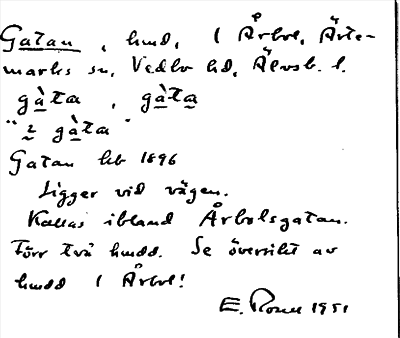 Gatan, hmd, i Årbol, Ärte-
marks sn, Vedbo hd, Älvsb. l.
gàta, gàta
"i gàta"
Gatan hb 1896
Ligger vid vägen.
Kallas ibland Årbolsgatan.
Förr två hmdd. Se översikt av
hmdd i Årbol!
E. Rosell 1951